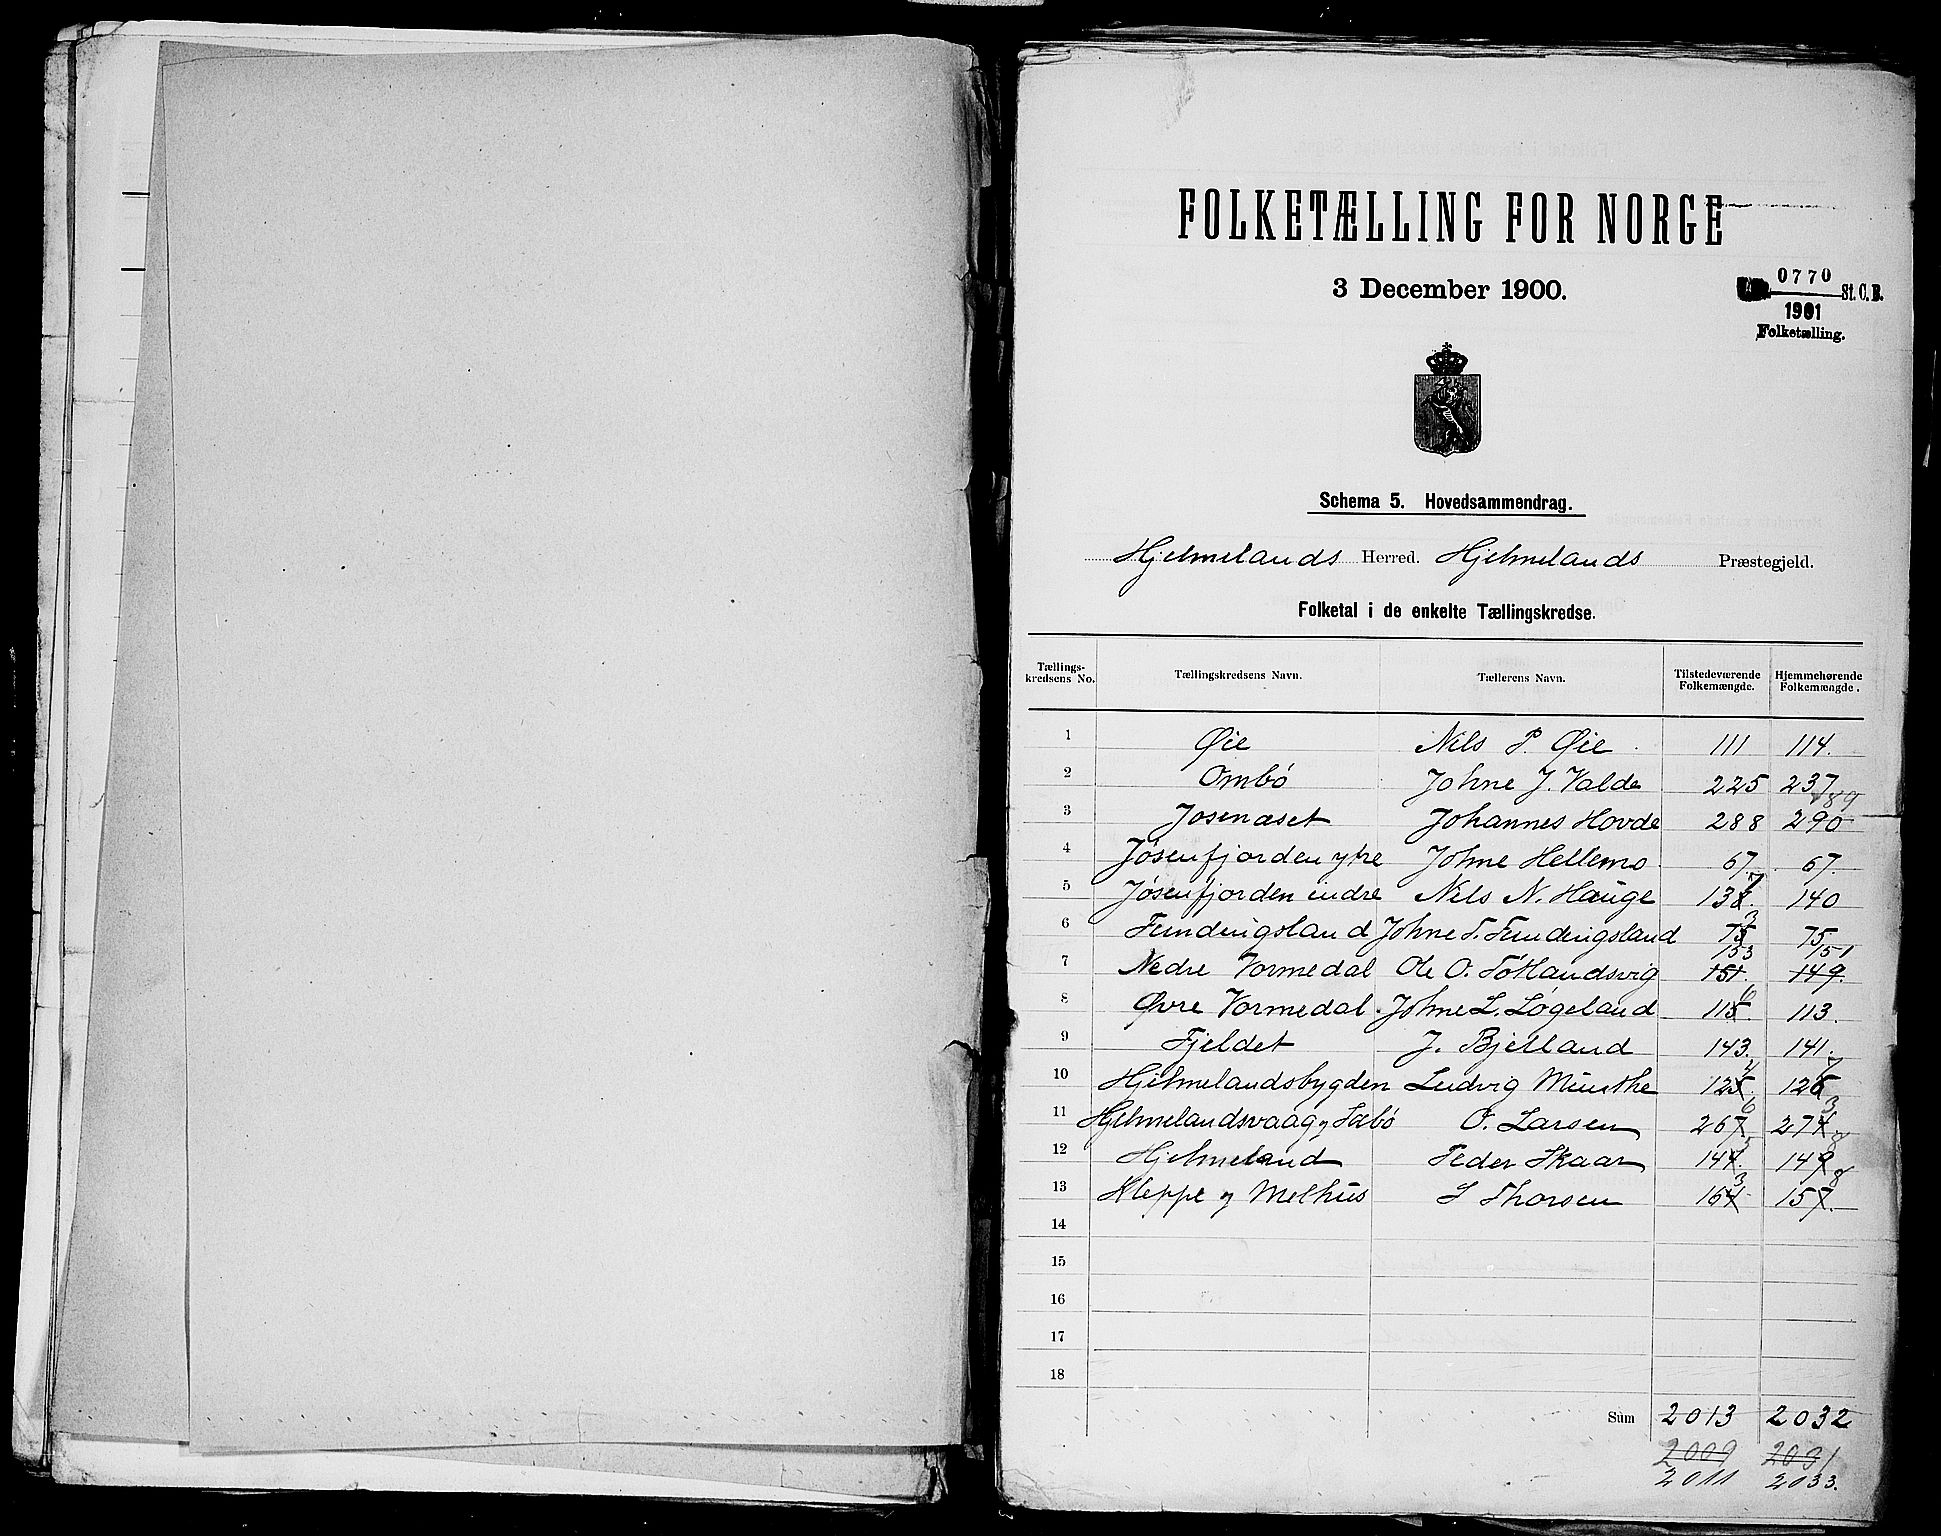 FOLKETÆLLING FOR NORGE
3 December 1900.
0770
1901
St. C. B.
Folketælling.
Schema 5. Hovedsammendrag.
Hjelmelands Herred. Hjelmelands Præstegjeld.
Folketal i de enkelte Tællingskredse.
Tællings-kredsens No. Tællingskredsens Navn. Tællerens Navn. Tilstedeværende Folkemængde. Hjemmehørende Folkemængde.
1 Øie Nils P. Øie 111 114.
2 Ombö Johne J. Valde 225 237
89
3 Josenæset Johannes Hovde 288 290
4 Jøsenfjorden ytre Johne Hellemo 67. 67.
7
5 Jøsenfjorden indre Nils N. Hauge 138. 140
3
6 Funderigsland Johne T. Funderigsland 75 75.
153 151
7 Nedre Vormedal Ole O. Tøtlandsvig 151. 149.
6
8 Øvre Vormedal. Johne L. Løgeland 115. 113.
9 Fjeldet J. Bjelland 143. 141.
4 7
10 Hjelmelandsbygden Ludvig Munthe 125 126
6 3
11 Hjelmelandsvaag og Sæbö O. Larsen 267 274
5 8
12 Hjelmeland Peder Skaar 144. 149
3 8
13 Kleppe og Melhus S Thorsen 164 157.
14
15
16
17
18
Sum 2013 2032
2009 2031
2011 2033.